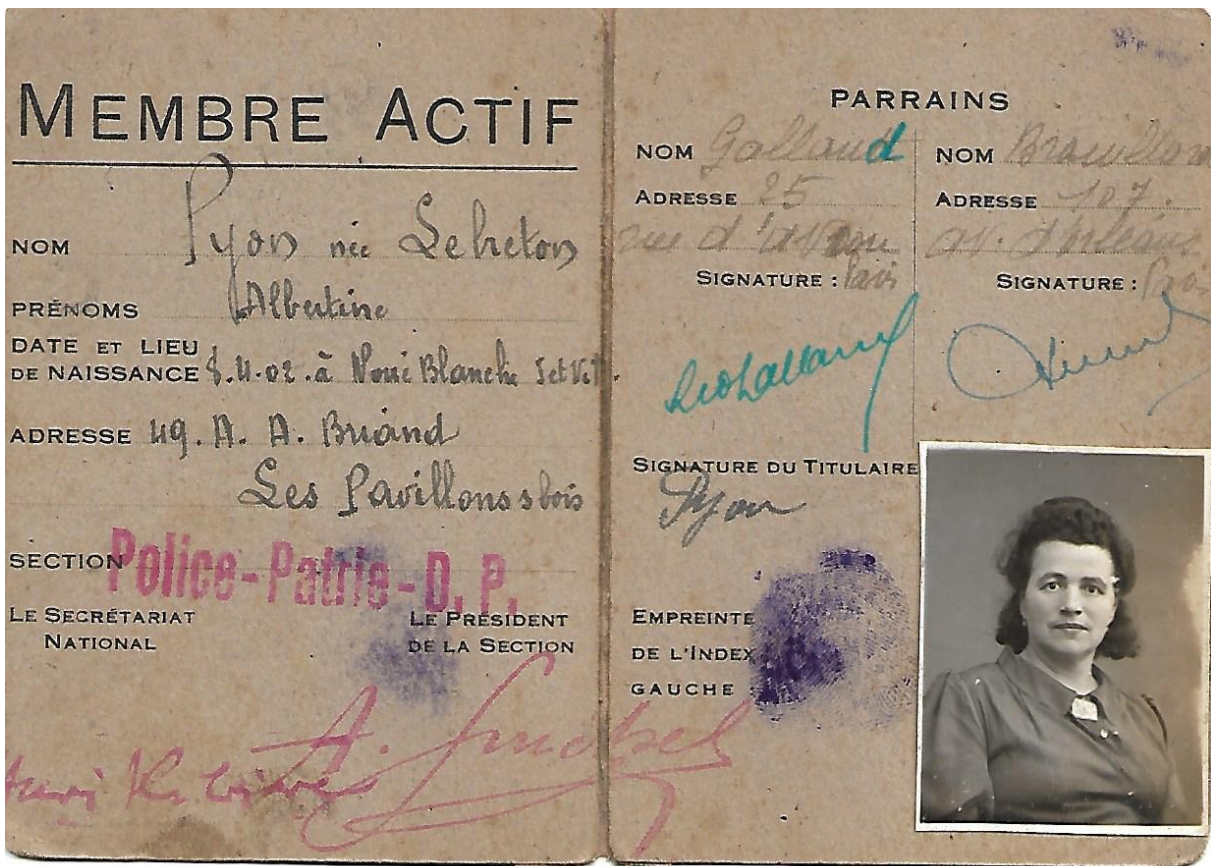 MEMBRE ACTIF
NOM Pyon née Lebreton
PRÉNOMS Albertine
DATE ET LIEU
DE NAISSANCE 8.4.02. à Noué Blanche I et V.
ADRESSE 49. A. A. Briand
Les Pavillons s bois
SECTION Police-Patrie-D. P.
LE SECRÉTARIAT
NATIONAL
LE PRÉSIDENT
DE LA SECTION
Henri
PARRAINS
NOM Galland
ADRESSE 25
rue d'
SIGNATURE : Paris
NOM
ADRESSE 107.
av. d'Orléans
SIGNATURE : Paris
SIGNATURE DU TITULAIRE
Pyon
EMPREINTE
DE L'INDEX
GAUCHE